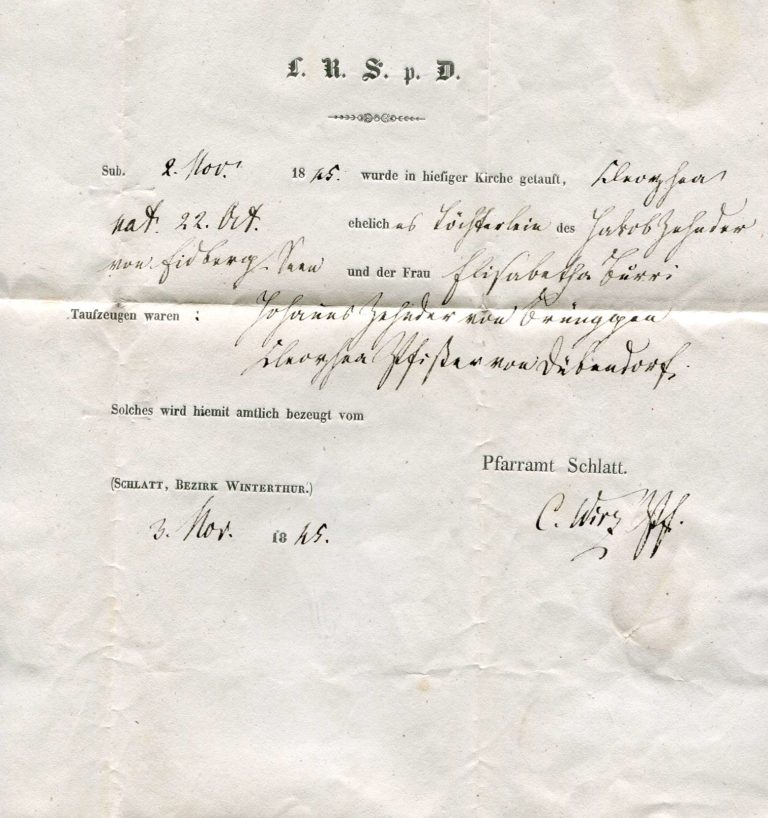 L. R. S. p. D.
Sub. 2. Nov. 1845. wurde in hiesiger Kirche getauft, Cleophea
nat. 22. Oct. eheliches Töchterlein des Jakob Zehnder
von Eidberg-Seen und der Frau Elisabetha Burri
Taufzeugen waren : Johannes Zehnder von Brünggen
Cleophea Pfister von Dübendorf.
Solches wird hiemit amtlich bezeugt vom
Pfarramt Schlatt.
(SCHLATT, BEZIRK WINTERTHUR.)
3. Nov. 1845.
C. Wirz Pf.